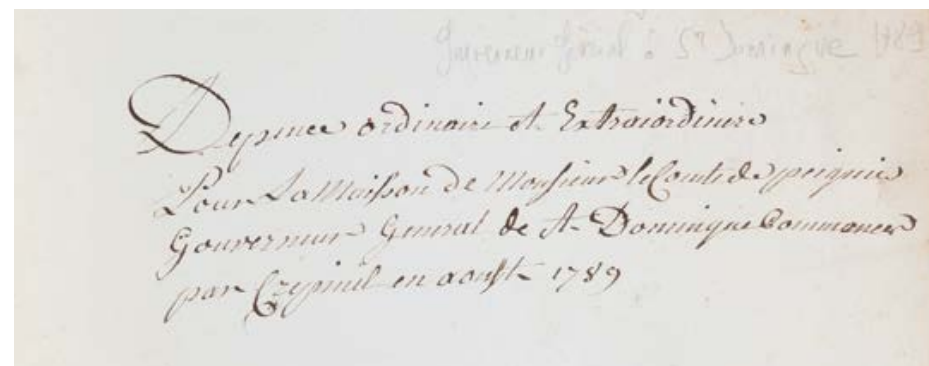 Gouverneur Général à St Domingue 1789
Depence ordinaire et Extraiordinire
Pour La Maison de Monsieur le Comte de peignie
Gouverneur General de St Dominique Commancé
par Crepinil en aoust 1789